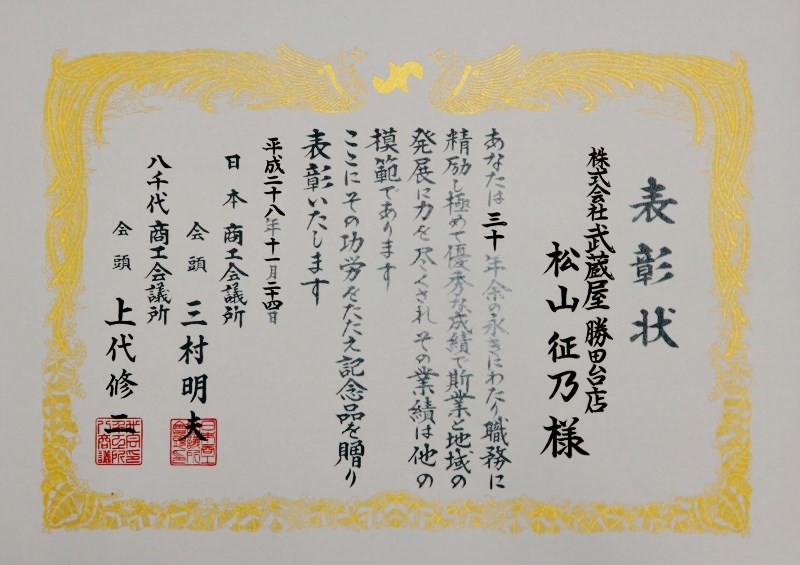 表彰状
株式会社 武蔵屋 勝田台店
松山征乃様
あなたは三十年余の永きにわたり職務に
精励し極めて優秀な成績で斯業と地域の
発展に力を尽くされ その業績は他の
模範であります
ここにその功労をたたえ記念品を贈り
表彰いたします
平成二十八年十一月二十四日
日本商工会議所
会頭 三村明夫
八千代商工会議所
会頭 上代修二